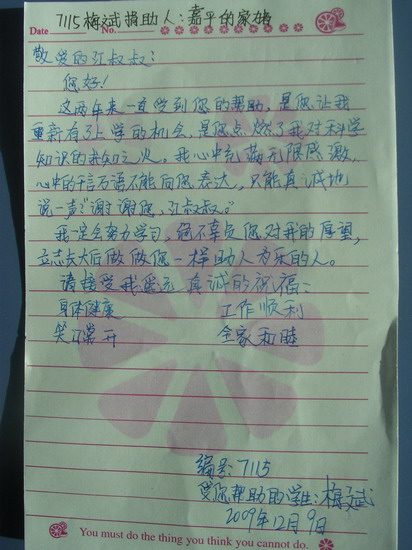 7115梅斌捐助人:嘉平的家
Date No.
敬爱的江叔叔:
您好!
这两年来一直受到您的帮助,是您让我
重新有了上学的机会,是您点燃了我对科学
知识的求知之火。我心中蕴藏无限感激,
心中的千言万语不能向您表达,只能真诚地
说一声“谢谢您,江叔叔。”
我一定会努力学习,绝不辜负您对我的厚望,
立志长大后做做您一样助人为乐的人。
请接受我最真诚的祝福:
身体健康 工作顺利
笑口常开 全家和睦
编号:7115
受您帮助的学生:梅斌
2009年12月9日
You must do the thing you think you cannot do.